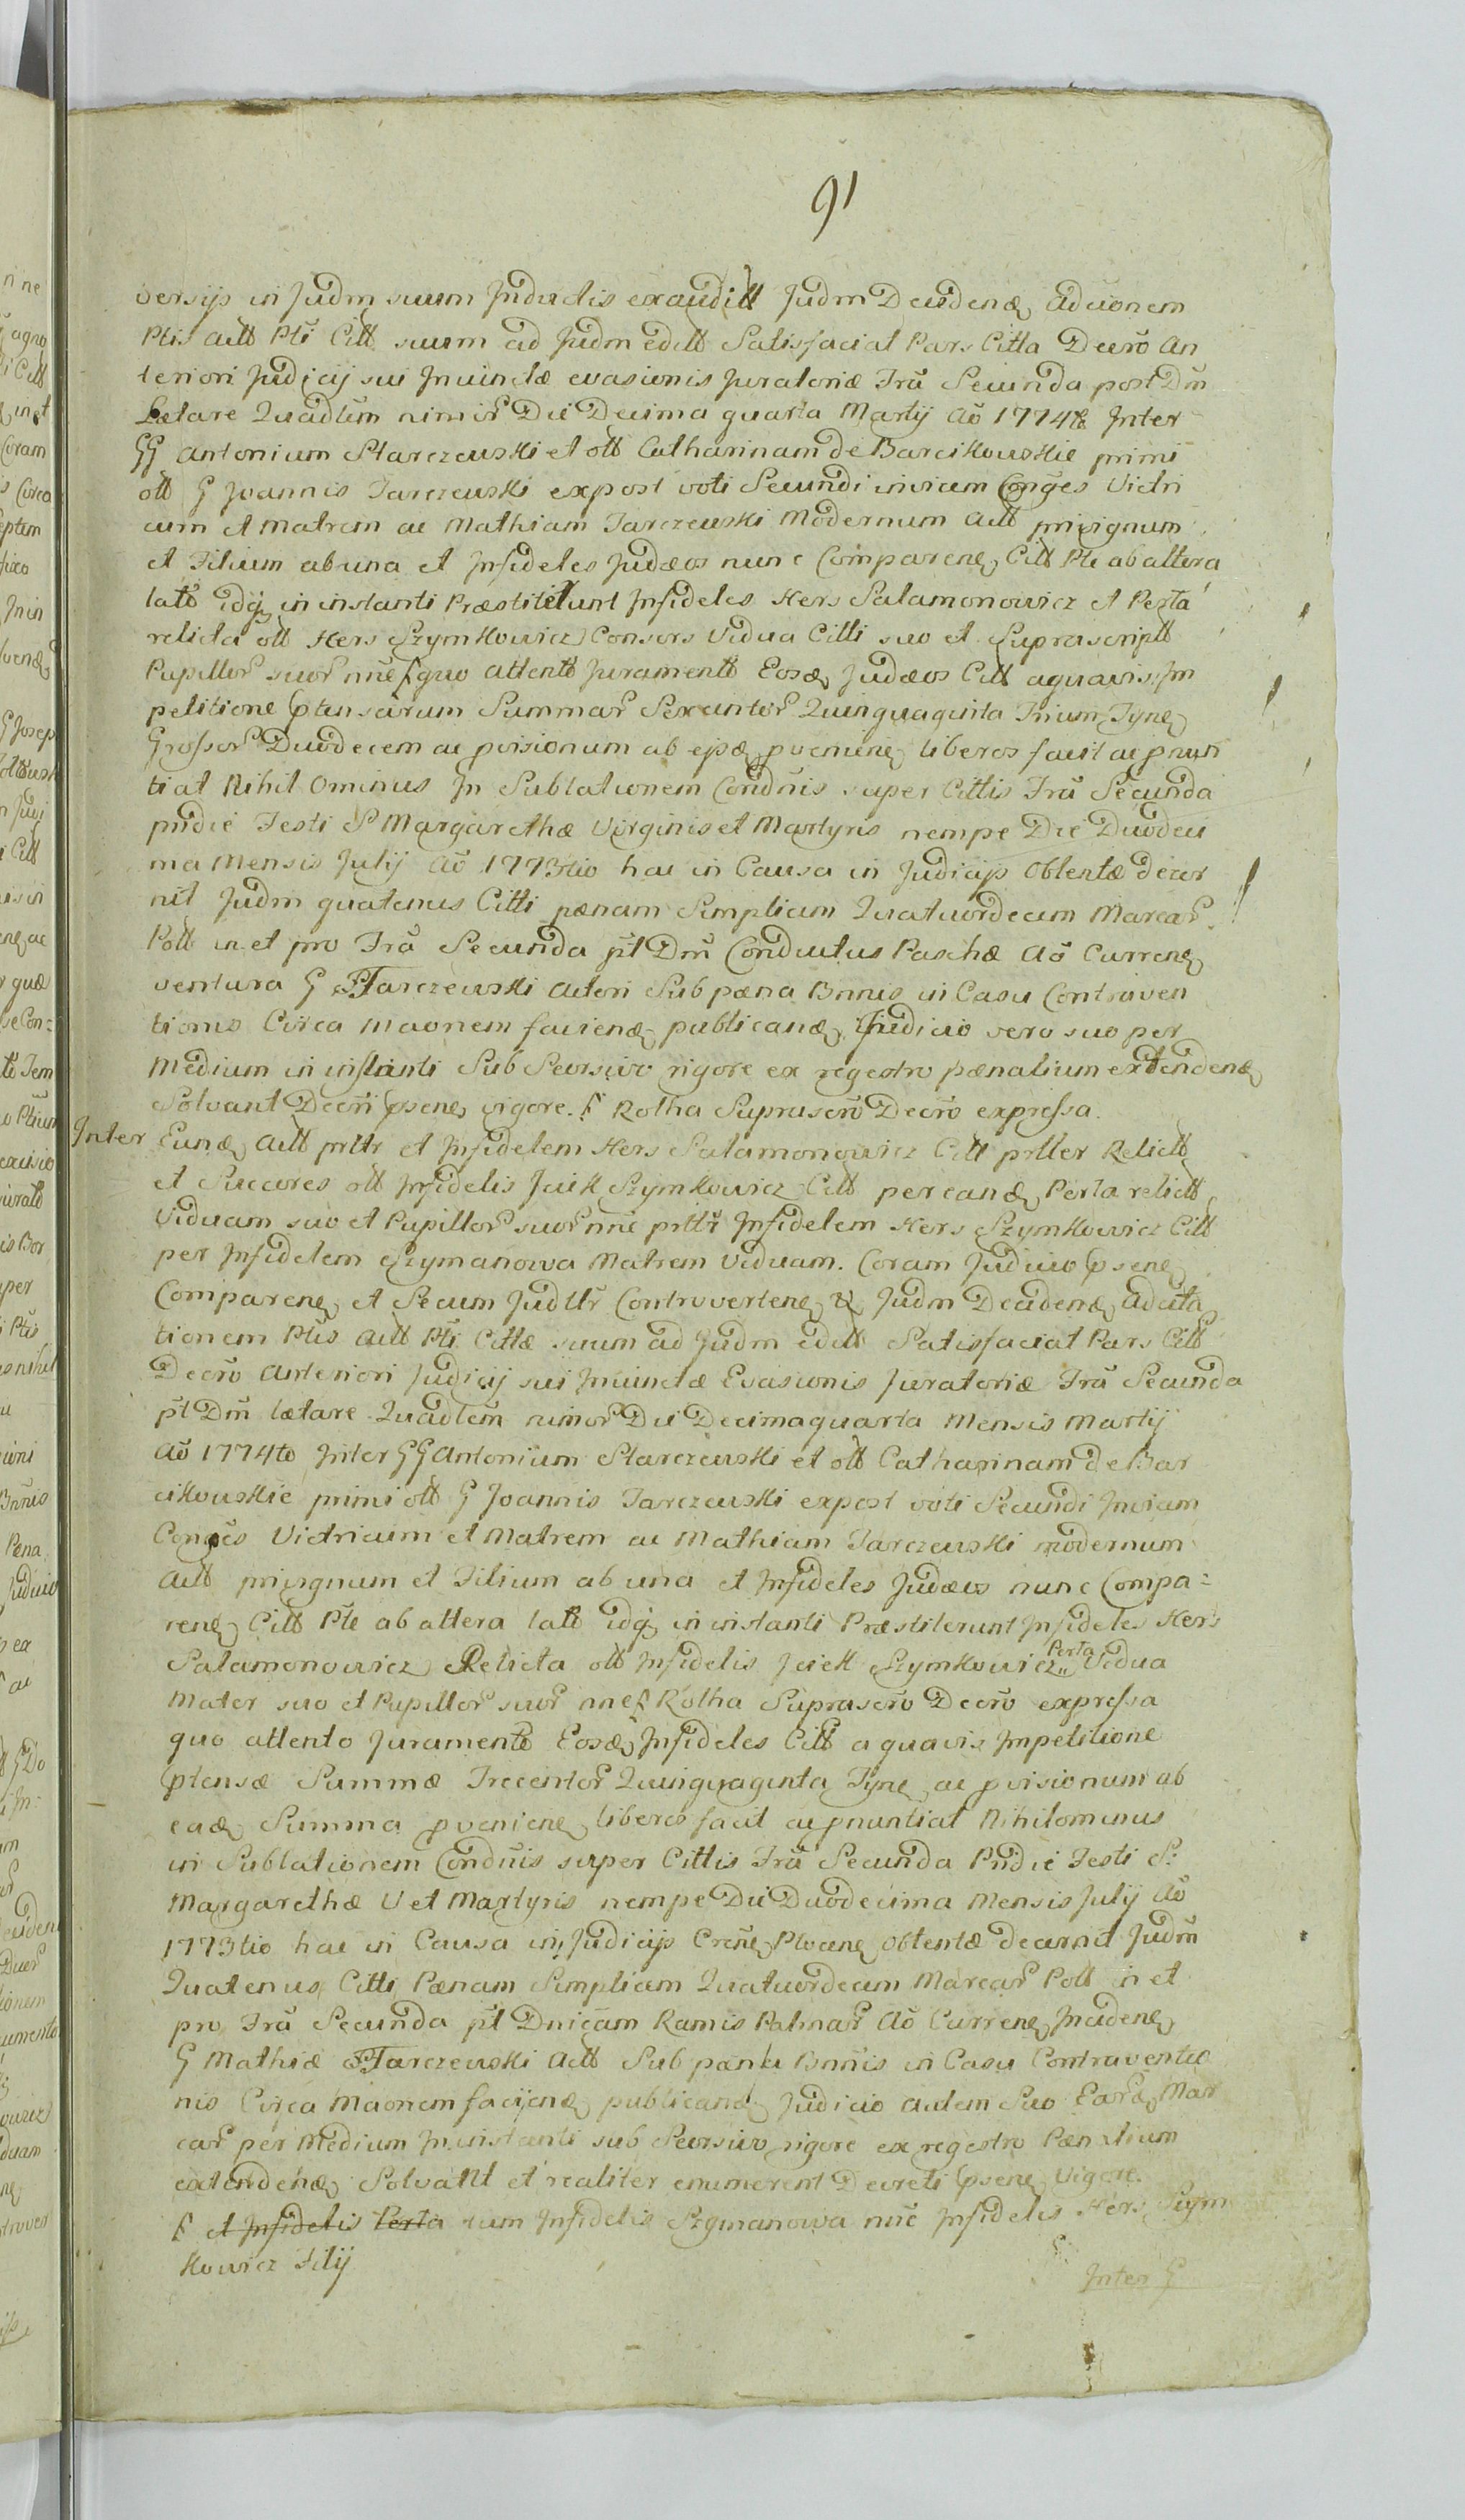 91
versijs in Judm suum Inductis exauditt Judm Decidend. Aducionem
Ptis Actt Pti Citt suum ad Judm editt Satisfaciat Pars Citta Decro An
teriori Judicij sui Iniunctæ evasionis Juratoriæ Fra Secunda post Dm
Lætare Quadlm nimir. Die Decima quarta Martij Ao 1774to Inter
GG Antonium Starczewski et ott Catharinam de Barcikowskie primi
ott G Joannis Tarczewski expost voti Secundi invicem Conges Vitri
cum et Matrem ac Mathiam Tarczewski Modernum Actt privignum
et Filium ab una et Infideles Judæos nunc Comparen. Citt Pte ab altera
latt idq. in instanti Præstiterunt Infideles Hers Salamonowicz et Perta
relicta ott Hers Szymkowicz Consors Vidua Citti suo et Suprascriptt
Pupillor. suor. nne § quo attento Juramento Eosd. Judæos Citt a quavis Im
petitione ptensarum Summar. Sexcentor. Quinquaginta Trium Tyn.
Grossor. Duodecem ac pvisionum ab eisd. pvenien. liberos facit ac pnun
tiat Nihil Ominus In Sublationem Condnis super Cittis Fra Secunda
pridie Festi S Margarethæ Virginis et Martyris nempe Die Duodeci
ma Mensis Julij Ao 1773tio hac in Causa in Judicijs Obtentæ decer
nit Judm quatenus Citti pænam Simplicem Quatuordecim Marcar.
Poll in et pro Fra Secunda pt Dm Conductus Paschæ Ao Curren.
ventura G Tarczewski Actori Sub pæna Bnnis in Casu Contraven
tionis Circa Maonem faciend. publicand. Judicio vero suo per
Medium in instanti Sub Seorsivo rigore ex regestro pænalium extendend.
Solvant Decri psen. vigore. § Rotha Suprascro Decro expressa.
Inter Eund. Actt prttr et Infidelem Hers Salamonowicz Citt prtter Relictt
et Succores ott Infidelis Jcick Szymkowicz Citt per eand. Perta relictt
Viduam suo et Pupillor. suor. nne prttr Infidelem Hers Szymkowicz Citt
per Infidelem Szymanowa Matrem Viduam. Coram Judicio psen.
Comparen. et Secum Judttr Controverten. &. Judm Decidend. ad cita
tionem Ptis Actt Pti Cittæ suum ad Judm editt Satisfaciat Pars Citt
Decro Anteriori Judicij sui Iniunctæ Evasionis Juratoriæ Fra Secunda
pt Dm lætare Quadlem nimir. Die Decima quarta Mensis Martij
Ao 1774to Inter GG Antonium Starczewski et ott Catharinam de Bar
cikowskie primi ott G Joannis Tarczewski expost voti Secundi Invicem
Conges Vitricum et Matrem ac Mathiam Tarczewski modernum
Actt privignum et Filium ab una et Infideles Judæos nunc Compa=
ren. Citt Pte ab altera latt idq. in instanti Præstiterunt Infideles Hers
Salamonowicz Relicta ott Infidelis Jcick Szymkowicz Perta Vidua
Mater suo et Pupillor. suor. nne § Rotha Suprascro Decro expressa
quo attento Juramento Eosd. Infideles Citt a quavis Impetitione
ptensæ Summæ Trecentor. Quinquaginta Tyn. ac pvisionum ab
ead. Summa pvenien. liberos facit ac pnuntiat Nihilominus
in Sublationem Condnis super Cittis Fra Secunda Pridie Festi S.
Margarethæ V et Martyris nempe Die Duodecima Mensis Julij Ao
1773tio hac in Causa in Judicijs Cren. Plocen. obtentæ decernit Judm
Quatenus Citti Pænam Simplicem Quatuordecim Marcar. Poll in et
pro Fra Secunda pt Dnicam Ramis Palmar. Ao Curren. Inciden.
G Mathiæ Tarczewski Actt Sub pæna Bnnis in Casu Contraventio
nis Circa Maonem faciend. publicand. Judicio autem Suo Eard. Mar
car. per Medium In instanti sub Seorsivo rigore ex regestro Pænalium
extendend. Solvant et realiter enumerent Decreti psen. Vigore.
§ et Infidelis Perta tum Infidelis Szymanowa nne Infidelis Hers Szym
kowicz Filij
Inter G